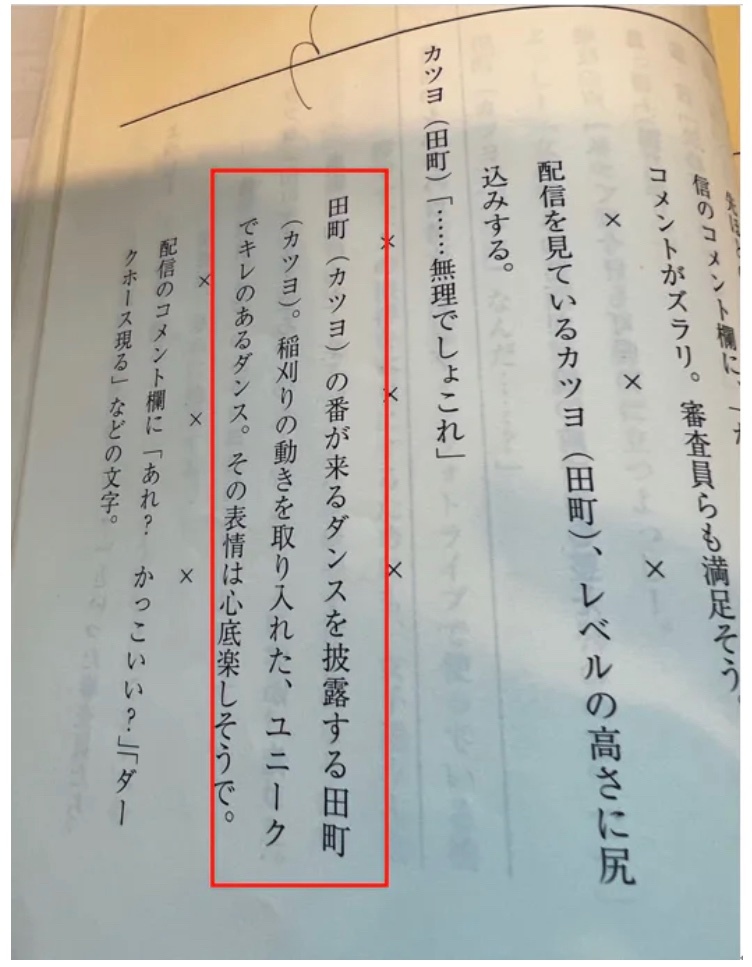 信のコメント欄に、「
コメントがズラリ。審査員らも満足そう。
× × ×
配信を見ているカツヨ（田町）、レベルの高さに尻
込みする。
カツヨ（田町）「……無理でしょこれ」
× × ×
田町（カツヨ）の番が来るダンスを披露する田町
（カツヨ）。稲刈りの動きを取り入れた、ユニーク
でキレのあるダンス。その表情は心底楽しそうで。
× × ×
配信のコメント欄に「あれ？ かっこいい？」「ダー
クホース現る」などの文字。